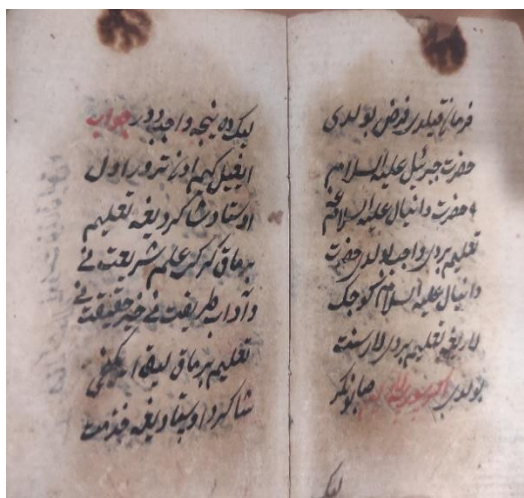 فرمان قیلدی فرض بولدی
حضرت جبرئیل علیه السلام
حضرت دانیال علیه السلامغه
تعلیم بردی واجب بولدی حضرت
دانیال علیه السلام کوچک
لاریغه تعلیم بردی لار سنت
بولدی اکر سورسالار صابونکر
لیک
لیکده نیچه واجب دور جواب
ایغیل کیم اون تورت دور اول
اوستاد شاکردیغه تعلیم
برماق کرک علم شریعت نی
و آداب طریقت نی خبر حقیقت نی
تعلیم برماق لیق
شاکرد اوستادیغه خذمت